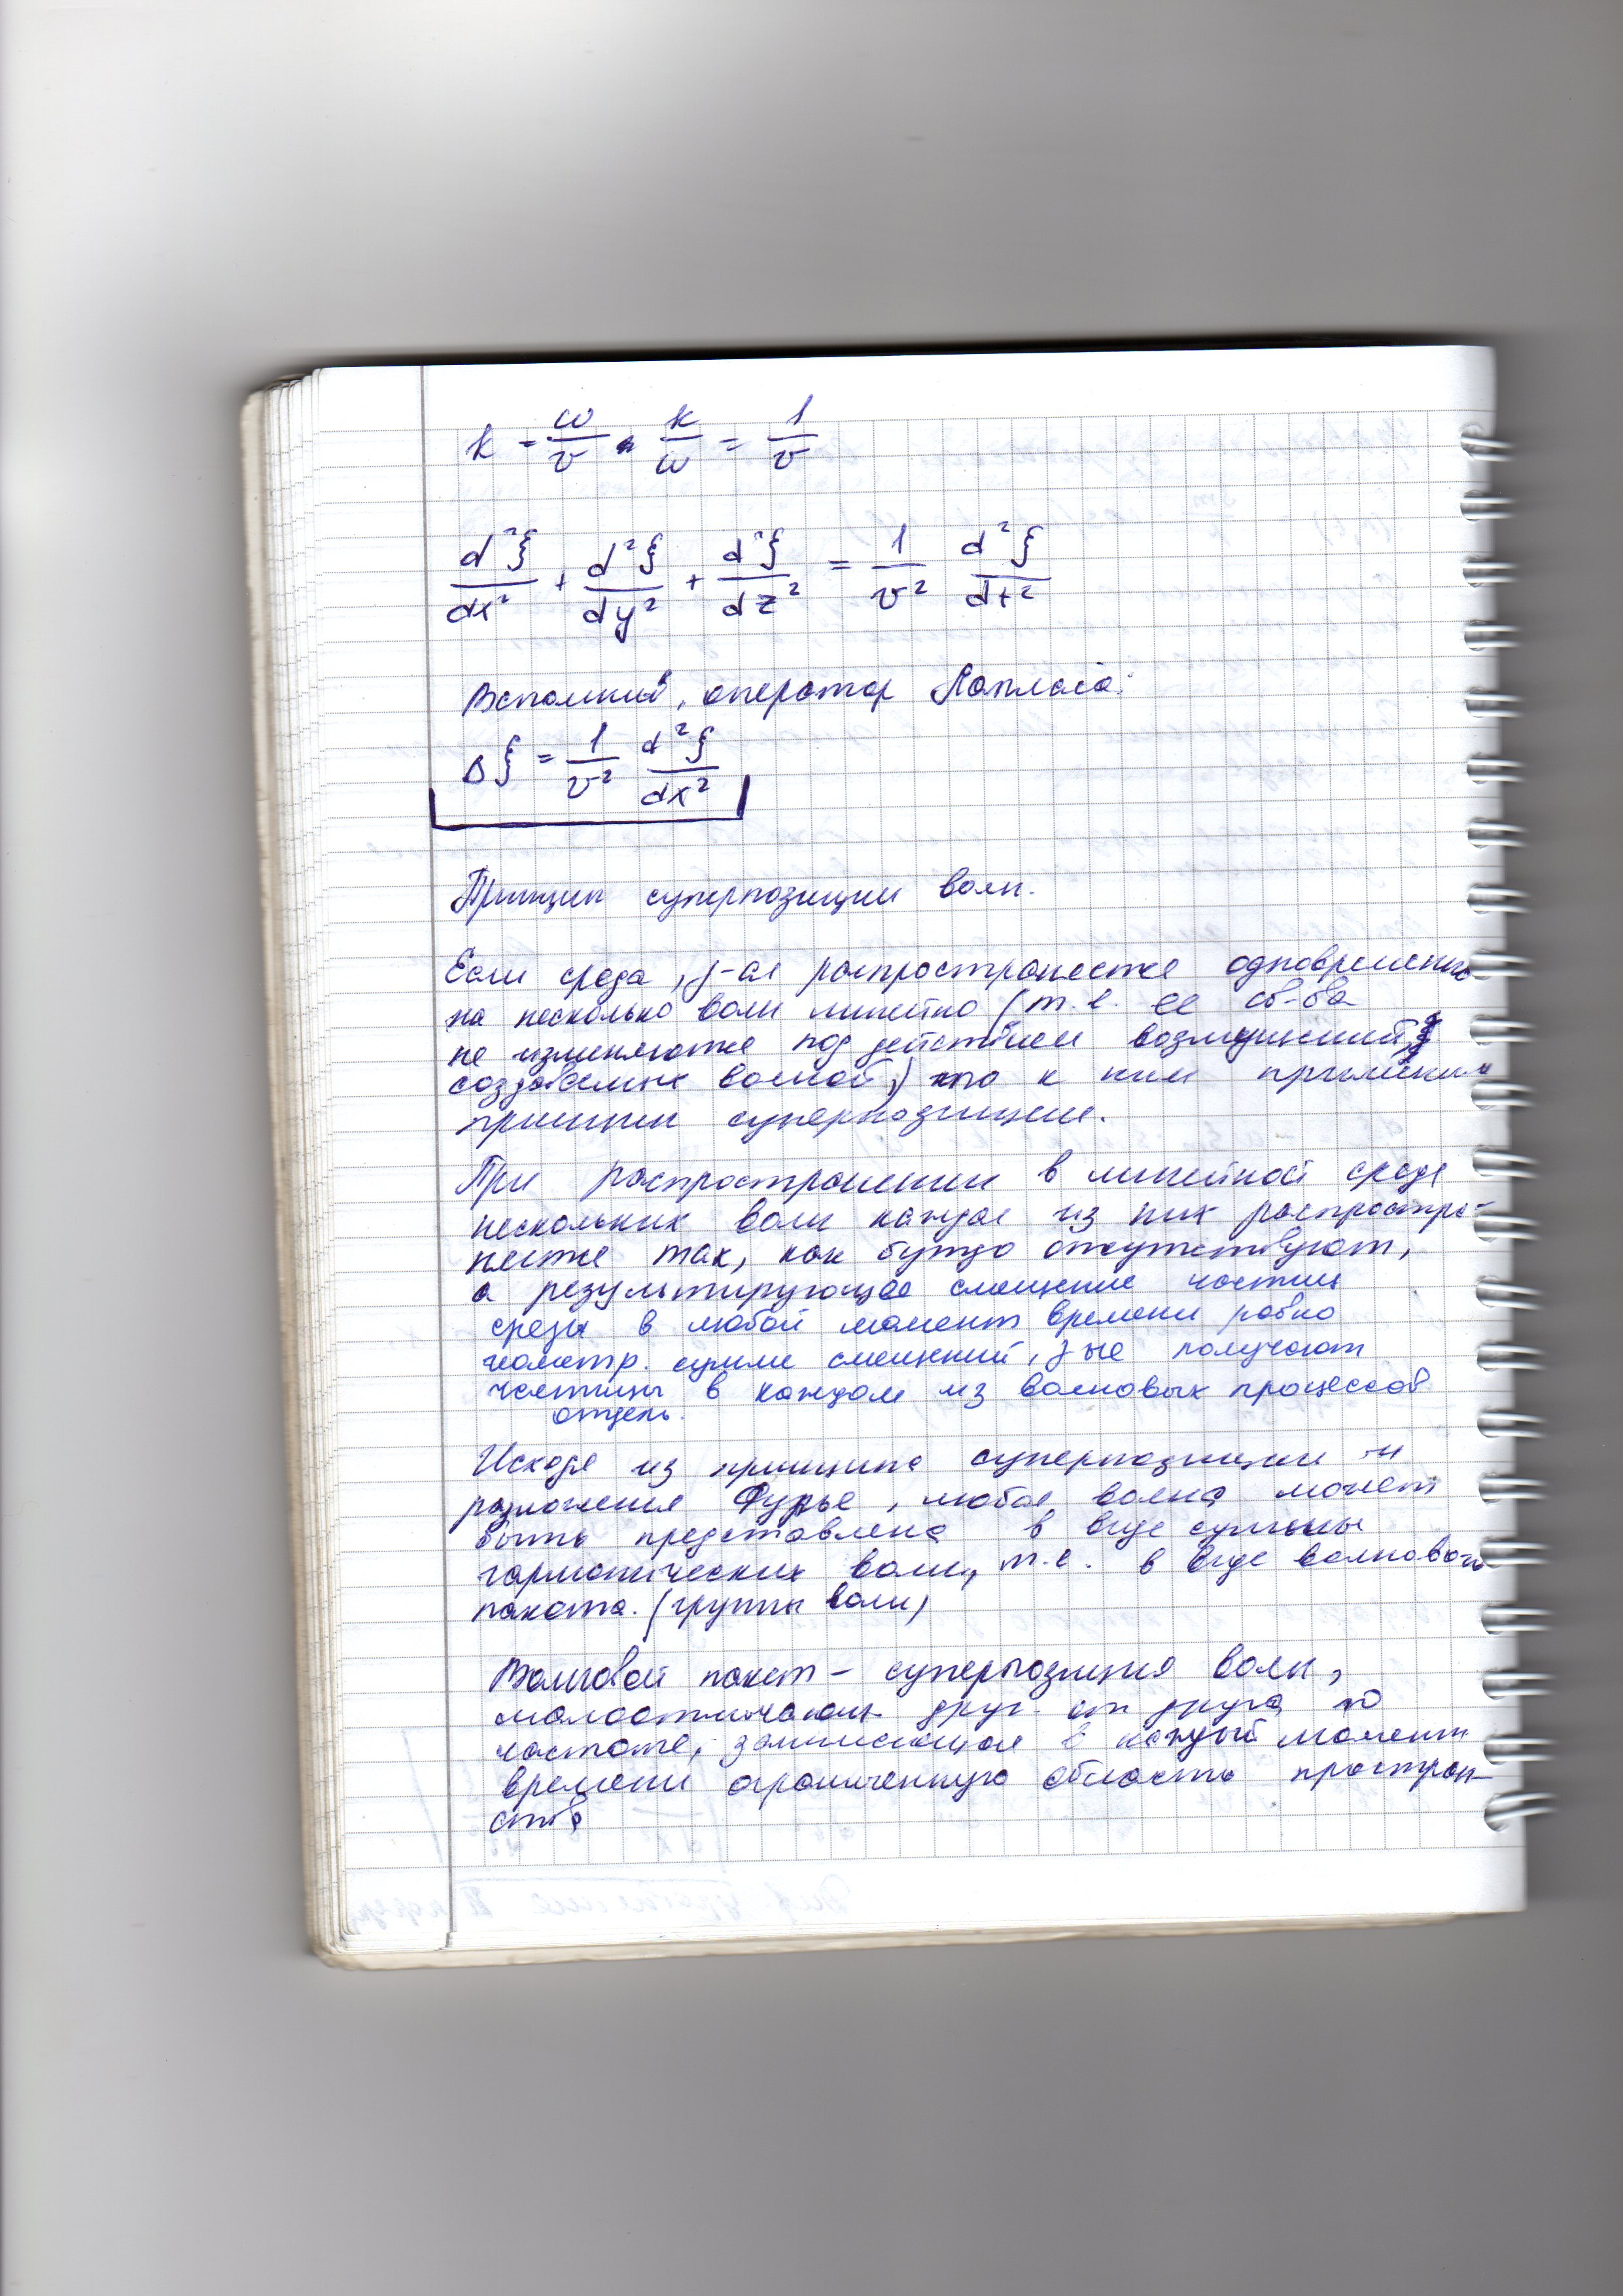 k = ω/v · k/ω = 1/v
d²ξ/dx² + d²ξ/dy² + d²ξ/dz² = 1/v² d²ξ/dt²
Вспомнив, оператор Лапласа:
Δξ = 1/v² d²ξ/dx²
Принцип суперпозиции волн.
Если среда, распространяется одновременно
на несколько волн линейно (т.е. ее св-ва
не изменяются под действием возмущений,
создаваемых волной,) то к ним применим
принцип суперпозиции.
При распространении в линейной среде
нескольких волн каждая из них распростра-
няется так, как будто отсутствуют,
а результирующее смещение частиц
среды в любой момент времени равно
геометр. сумме смещений, получают
частицы в каждом из волновых процессов
отдель.
Исходя из принципа суперпозиции и
разложения Фурье, любая волна может
быть представлена в виде суммы
гармонических волн, т.е. в виде волнового
пакета. (группы волн)
Волновой пакет - суперпозиция волн,
мало друг от друга по
частоте, занимающая в каждый момент
времени ограниченную область простран-
ства